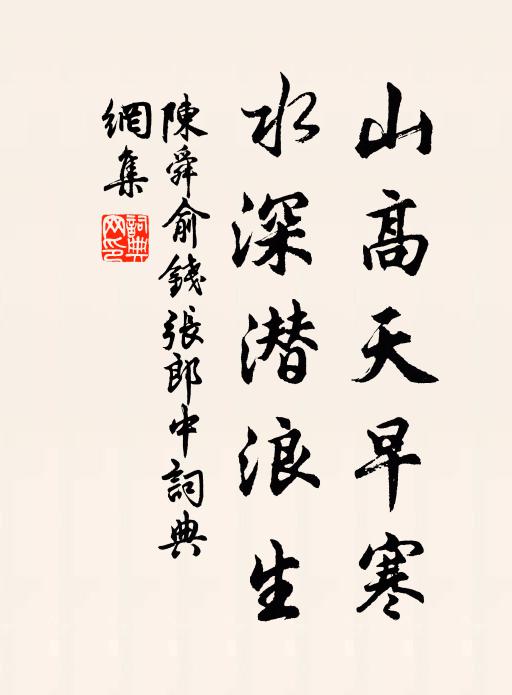 山高天早寒
水深潜浪生
陳舜俞錢張郎中詞典
網集
詞典網印